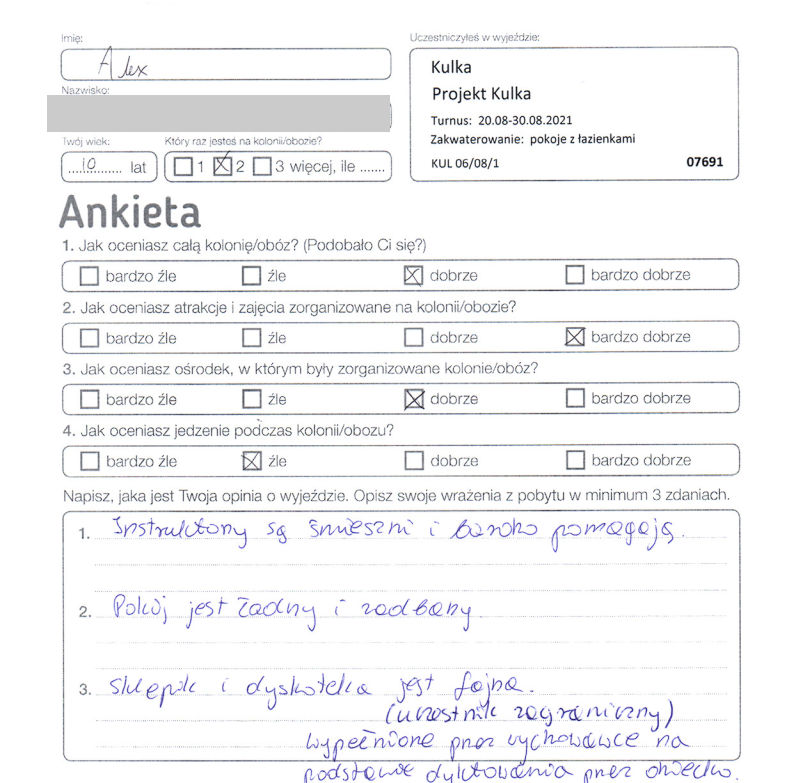 Imię:
Alex
Uczestniczyłeś w wyjeździe:
Kulka
Projekt Kulka
Turnus: 20.08-30.08.2021
Zakwaterowanie: pokoje z łazienkami
KUL 06/08/1 07691
Nazwisko:
Twój wiek:
10 lat
Który raz jesteś na kolonii/obozie?
1 2 3 więcej, ile .......
Ankieta
1. Jak oceniasz całą kolonię/obóz? (Podobało Ci się?)
bardzo źle źle dobrze bardzo dobrze
2. Jak oceniasz atrakcje i zajęcia zorganizowane na kolonii/obozie?
bardzo źle źle dobrze bardzo dobrze
3. Jak oceniasz ośrodek, w którym były zorganizowane kolonie/obóz?
bardzo źle źle dobrze bardzo dobrze
4. Jak oceniasz jedzenie podczas kolonii/obozu?
bardzo źle źle dobrze bardzo dobrze
Napisz, jaka jest Twoja opinia o wyjeździe. Opisz swoje wrażenia z pobytu w minimum 3 zdaniach.
1. Instruktorzy są śmieszni i bardzo pomagają.
2. Pokój jest ładny i zadbany.
3. Sklepik i dyskoteka jest fajna.
(uczestnik zagraniczny)
wypełnione przez wychowawcę na
podstawie dyktowania przez dziecko.